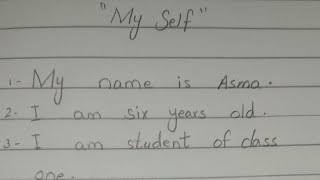 "My Self"
1- My name is Asma.
2- I am six years old.
3- I am student of class
one.